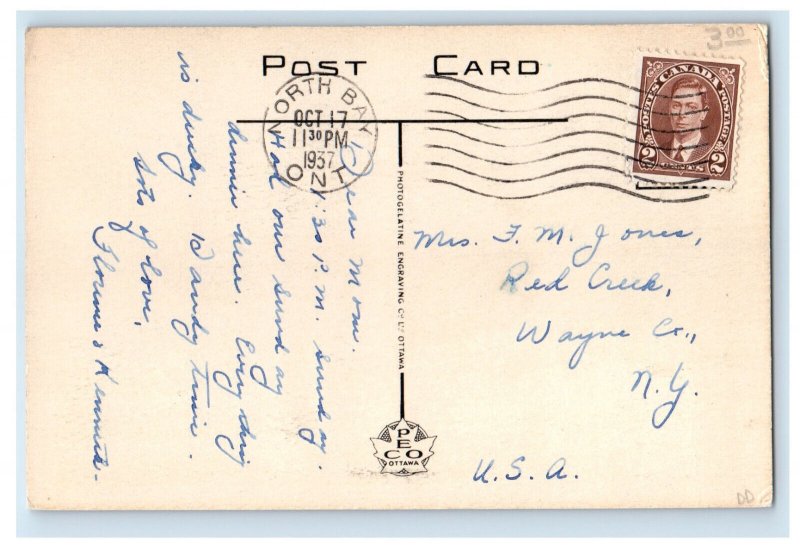 3.00
POST CARD
NORTH BAY
OCT 17
11 30 PM
1937
ONT
POSTES CANADA POSTAGE
2 CENTS 2
Dear Mom.
1.30 P.M. Sunday.
Had our Sunday
dinner here. Everything
is ducky. Dandy time.
Lots of love,
Florence & Kenneth.
PHOTOGELATINE ENGRAVING CO LTD OTTAWA
PECO
OTTAWA
Mrs. F. M. Jones,
Red Creek,
Wayne Co.,
N.Y.
U.S.A.
DD